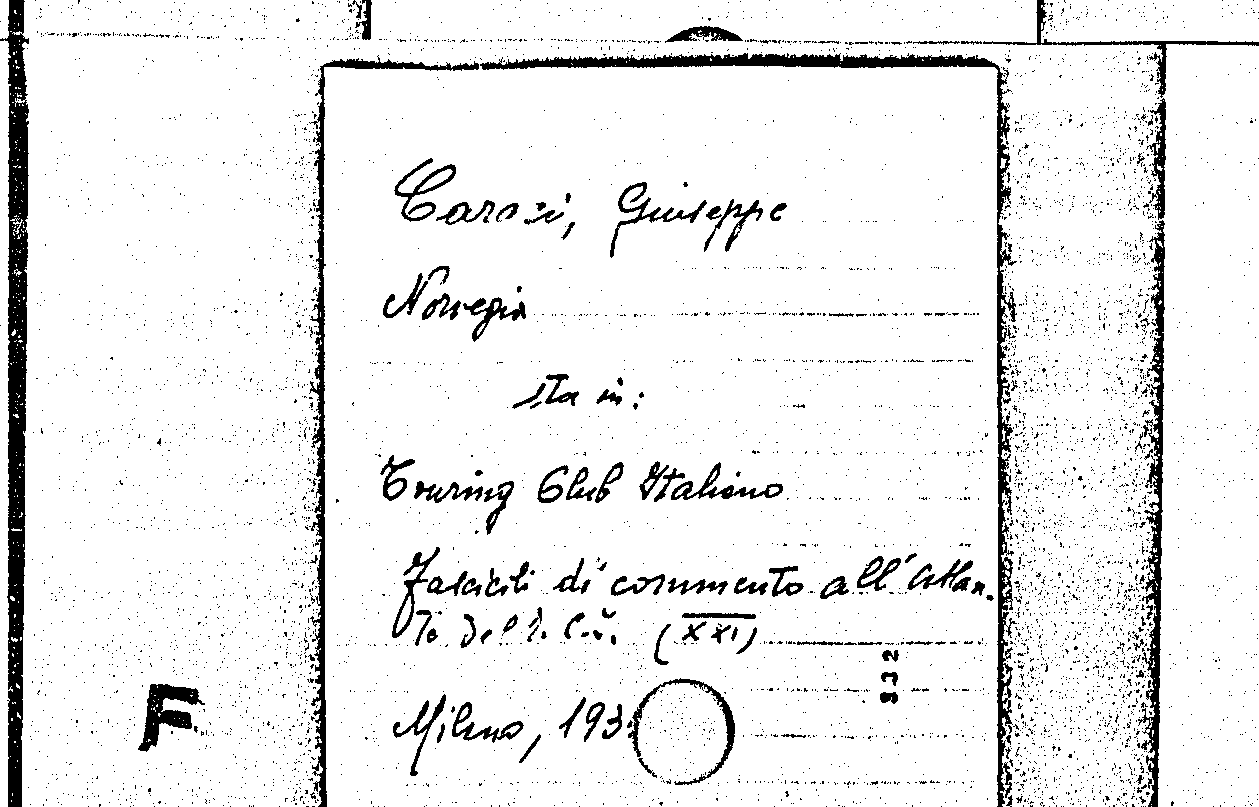 Carosi, Giuseppe
Norvegia
sta in:
Touring Club Italiano
Fascicoli di commento all'Atlan-
te del (XXI)
332
Milano, 193
F